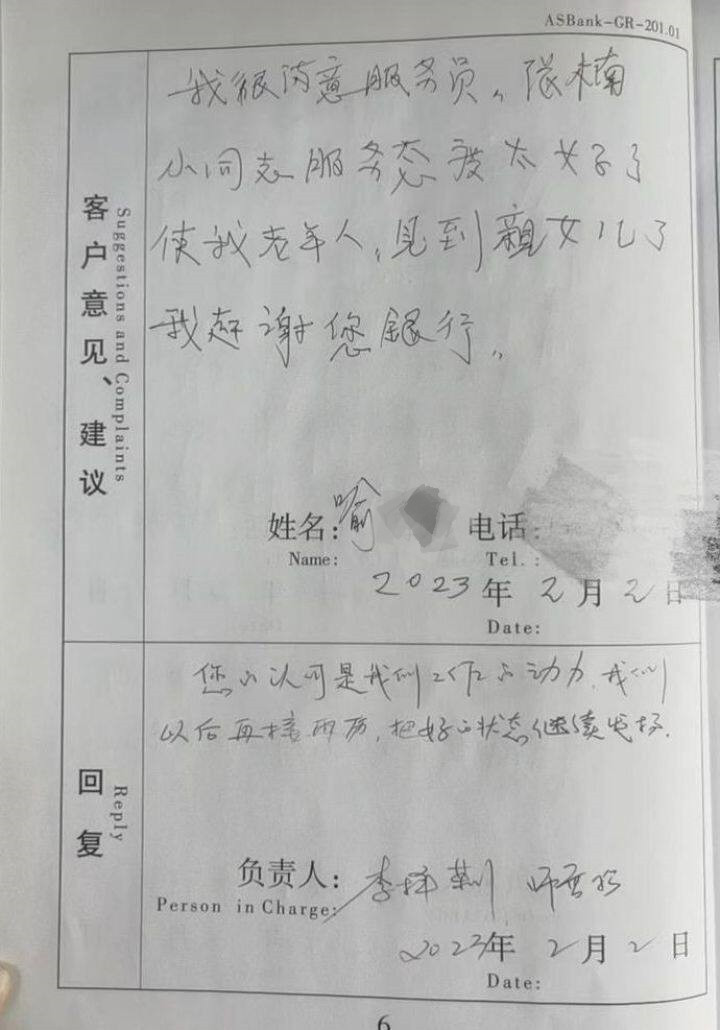 ASBank-GR-201.01
客户意见、建议
Suggestions and Complaints
我很满意服务员,,张楠
小同志服务态度太好了
使我老年人,,见到親女儿了
我感谢您銀行,,
姓名:喻
Name:
电话:
Tel.:
2023年2月2日
Date:
回复
Reply
您的认可是我们工作的动力,我们
以后再接再厉,把好的状态继续发扬.
负责人:李
Person in Charge:
2023年2月2日
Date:
6